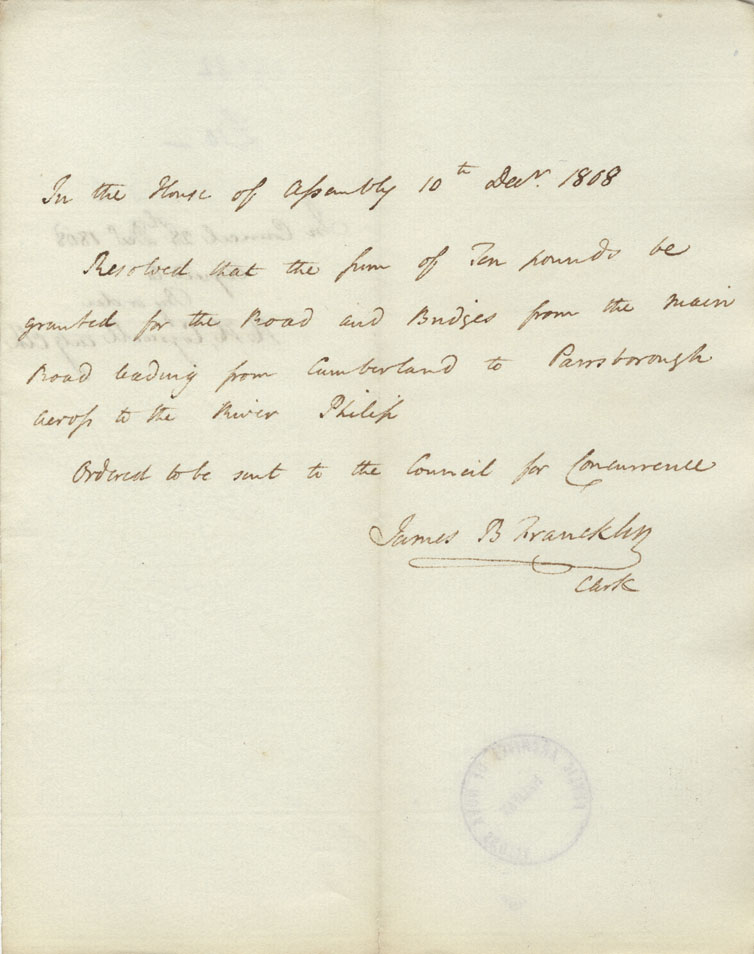 In the House of Assembly 10th Decr. 1808
Resolved that the sum of Ten pounds be
granted for the Road and Bridges from the main
Road leading from Cumberland to Parrsborough
across to the River Philip
Ordered to be sent to the Council for Concurrence
James B Franckly
Clerk
In Council 28th Decr 1808